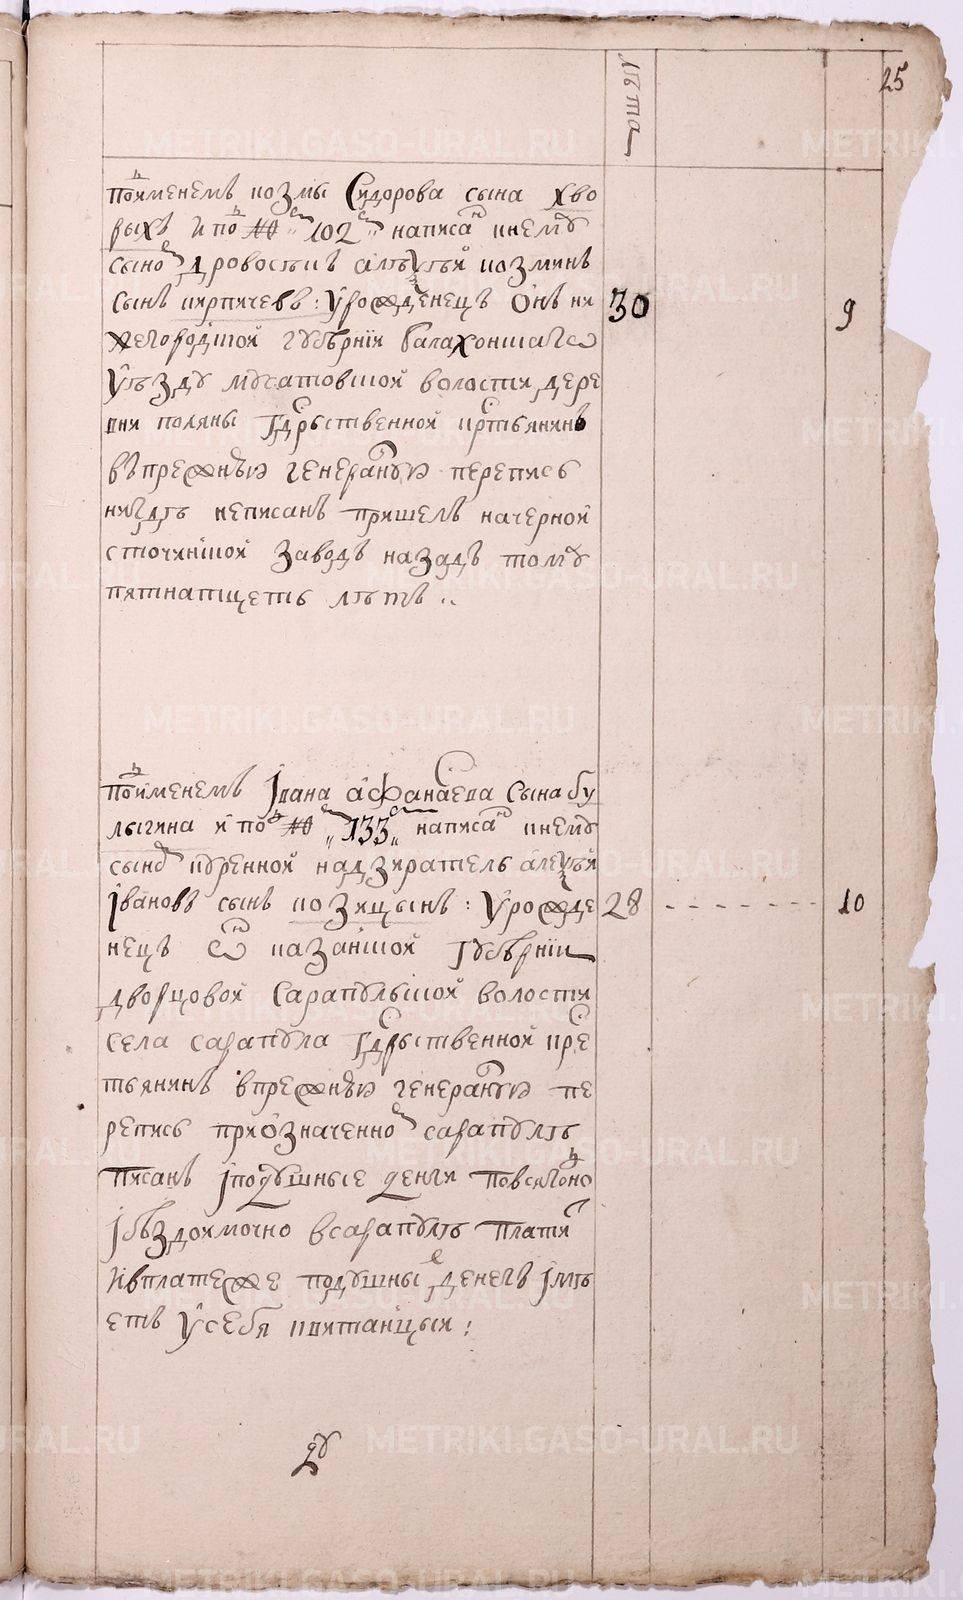 25
лѣта
подимемъ козмы Сидорова сына хво
рыхъ и по № 102 написанъ к нему
сыномъ дровосекъ алеѯѣй козминъ
сынъ кирпичевъ: уроженецъ онъ ни
жегородцкой губернiи балахонскаго
уѣзду мусатовской волости дере
вни поляны гдрственной крстьянинъ
в прежнюю генералную перепись
нигдѣ неписанъ пришелъ на черной
сточинской заводъ назадъ тому
пятнатцеть лѣтъ
30
9
по именемъ iвана афанасева сына бу
лыгина и по № 133 написанъ к нему
сыномъ куренной надзиратель алеѯѣй
iвановъ сынъ козицынъ: урожде
нецъ онъ казанской губернiи
дворцовой сарапулской волости
села сарапула гдрственной кре
стьянинъ в прежнюю генералную пе
репись при означенномъ сарапулѣ
писанъ i подушные денги повсягодно
i бѣздоимочно в сарапулѣ платилъ
и в платеже подушныхъ денегъ iмѣ
етъ у себя квитанцыи:
28
10